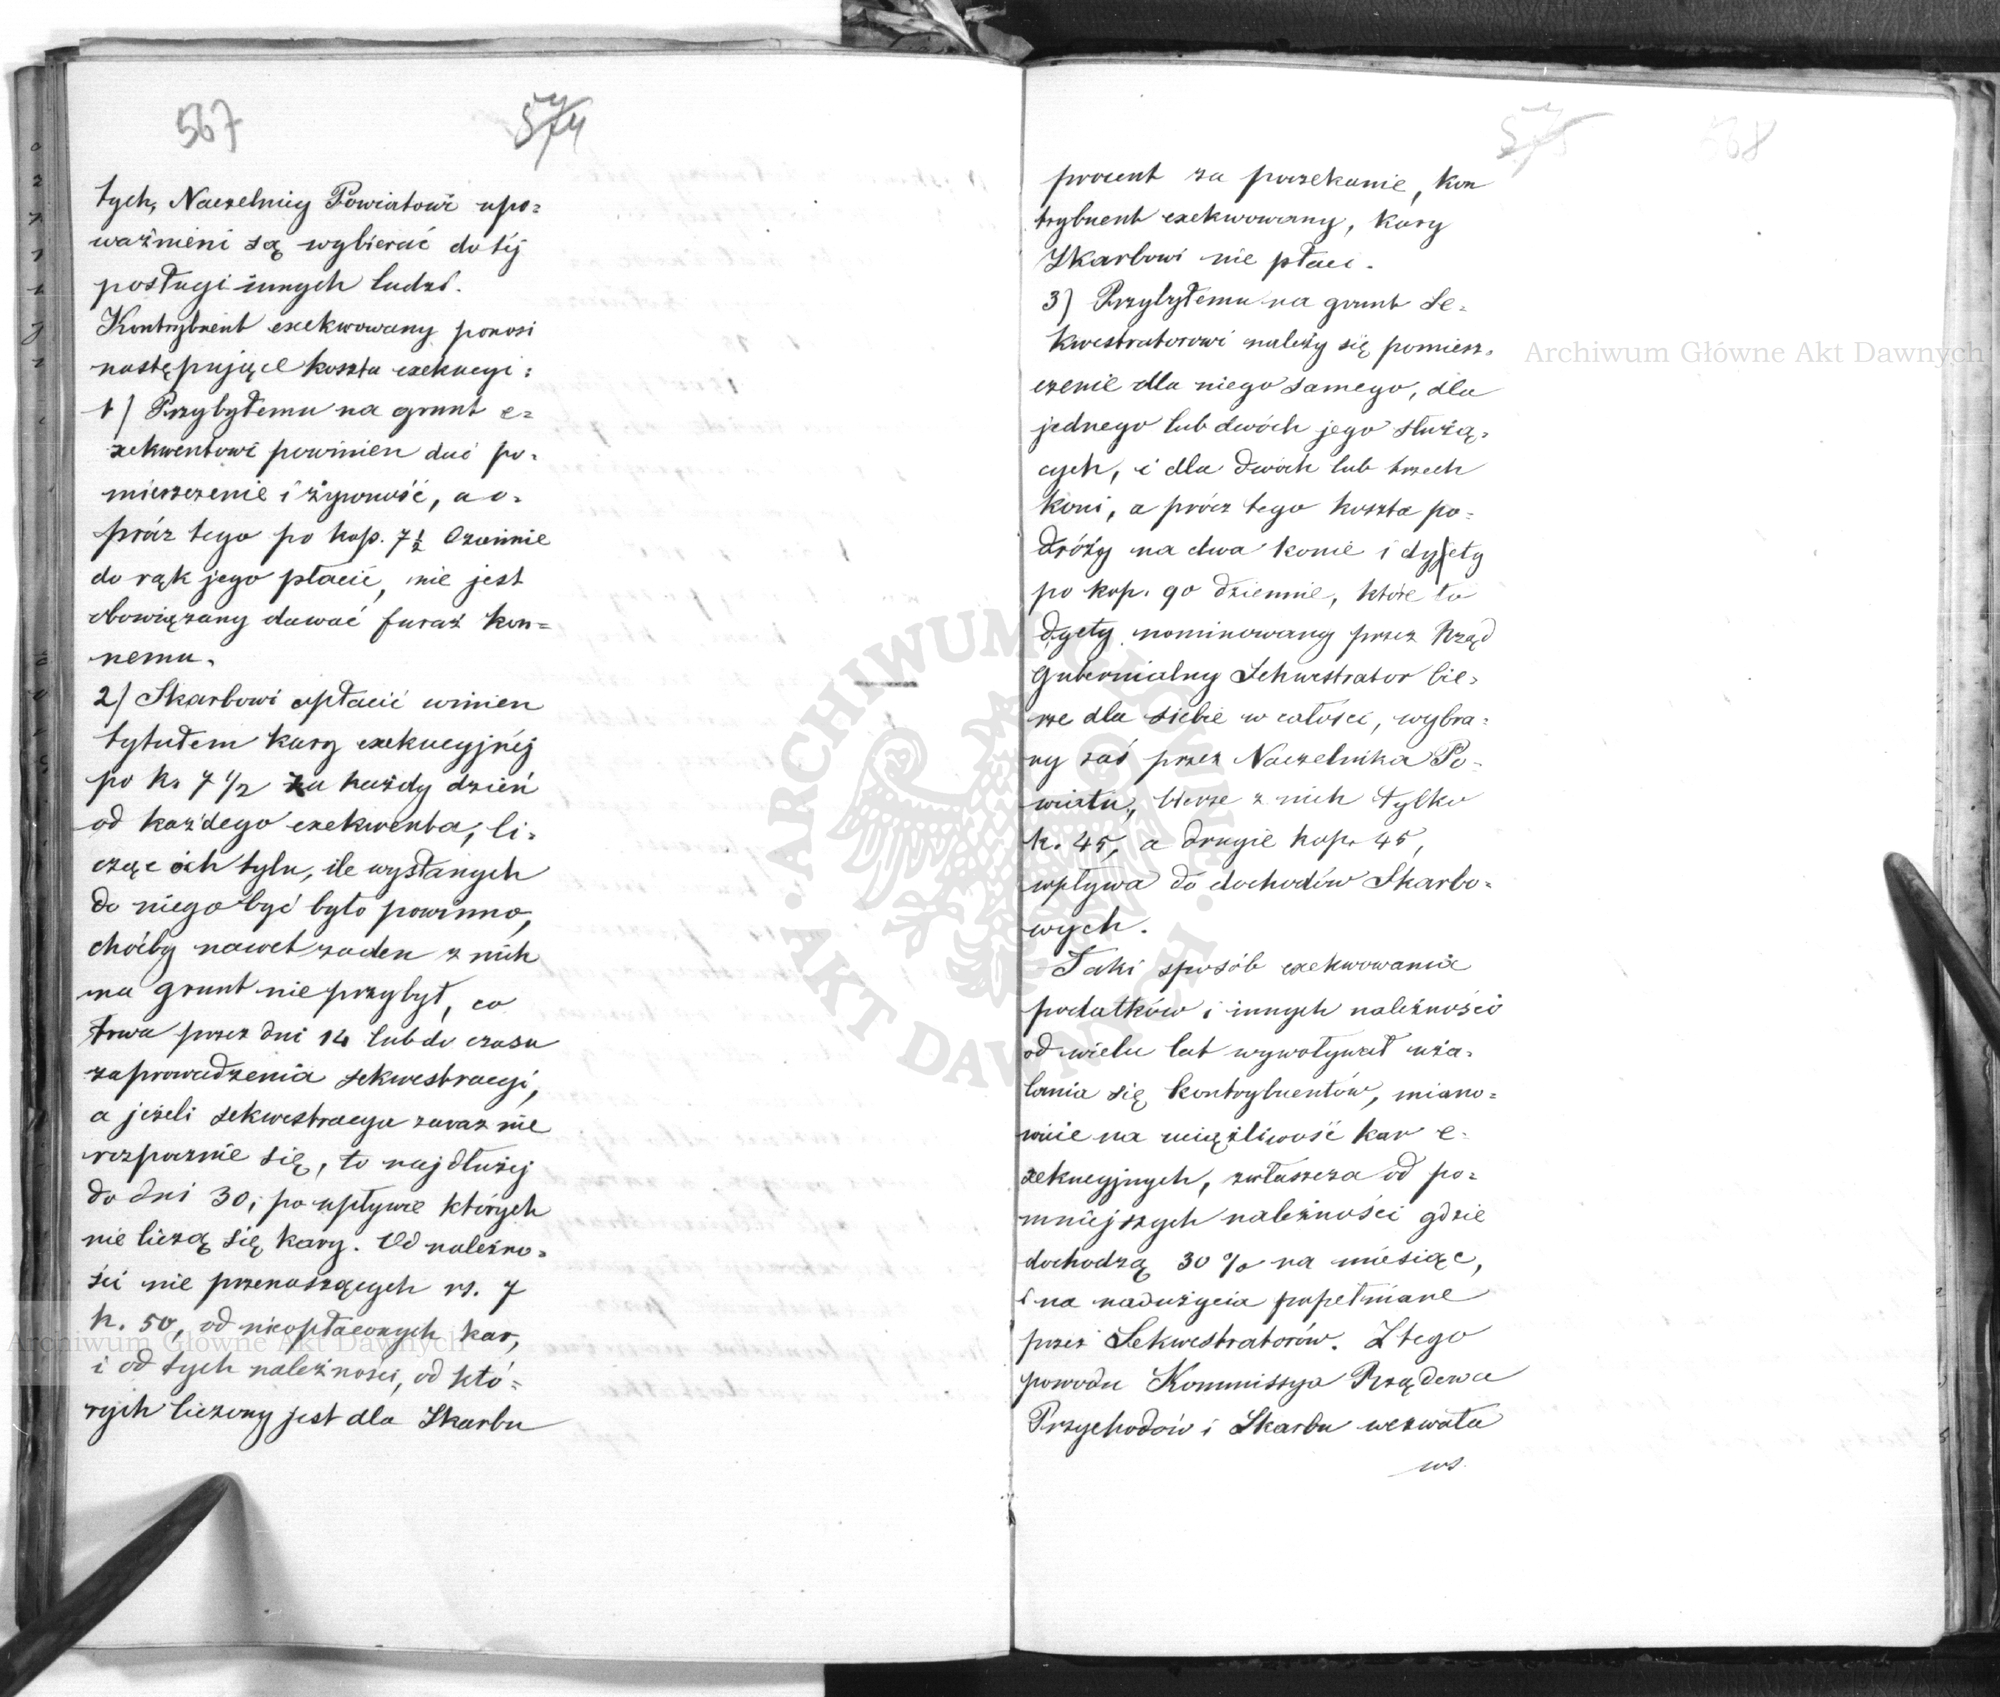 567 574
tych, Naczelnicy Powiatowi upo=
ważnieni są wybierać do téj
posługi innych ludzi.
Kontrybuent exekwowany ponosi
następujące koszta exekucyi:
1) Przybyłemu na grunt e=
zekwentowi powinien dać po=
mieszczenie i żywność, a o=
prócz tego po kop. 7½ dziennie
do rąk jego płacić, nie jest
obowiązany dawać furaż kon=
nemu.
2) Skarbowi opłacić winien
tytułem kary exekucyjnéj
po k. 7 1/2 za każdy dzień
od każdego exekwenta, li=
cząc ich tylu, ile wysłanych
do niego być było powinno,
choćby nawet żaden z nich
na grunt nie przybył, co
trwa przez dni 14 lub do czasu
zaprowadzenia sekwestracyi,
a jeżeli sekwestracya zaraz nie
rozpocznie się, to najdłużej
do dni 30, po upływie których
nie liczą się kary. Od należno=
ści nie przenoszących rs. 7
k. 50, od nieopłaconych kar,
i od tych należności, od któ=
rych liczony jest dla Skarbu
575 568
procent za poczekanie, kon
trybuent exekwowany, kary
Skarbowi nie płaci.
3) Przybyłemu na grunt Se=
kwestratorowi należy się pomiesz=
czenie dla niego samego, dla
jednego lub dwóch jego służą=
cych, i dla dwóch lub trzech
koni, a prócz tego koszta po=
dróży na dwa konie i dyety
po kop. 90 dziennie, które to
dyety nominowany przez Rząd
Gubernialny Sekwestrator bie=
rze dla siebie w całości, wybra=
ny zaś przez Naczelnika Po=
wiatu, bierze z nich tylko
k. 45, a drugie kop. 45,
wpływa do dochodów Skarbo=
wych.
Taki sposób exekwowania
podatków i innych należności
od wielu lat wywoływał uża=
lania się kontrybuentów, miano=
wicie na uciążliwość kar e=
zekucyjnych, zwłaszcza od po=
mniejszych należności gdzie
dochodzą 30 % na miesiąc,
i na nadużycia popełniane
przez Sekwestratorów. Z tego
powodu Kommissya Rządowa
Przychodów i Skarbu wezwała
ws.
Archiwum Główne Akt Dawnych
Archiwum Główne Akt Dawnych
ARCHIWUM GŁÓWNE AKT DAWNYCH